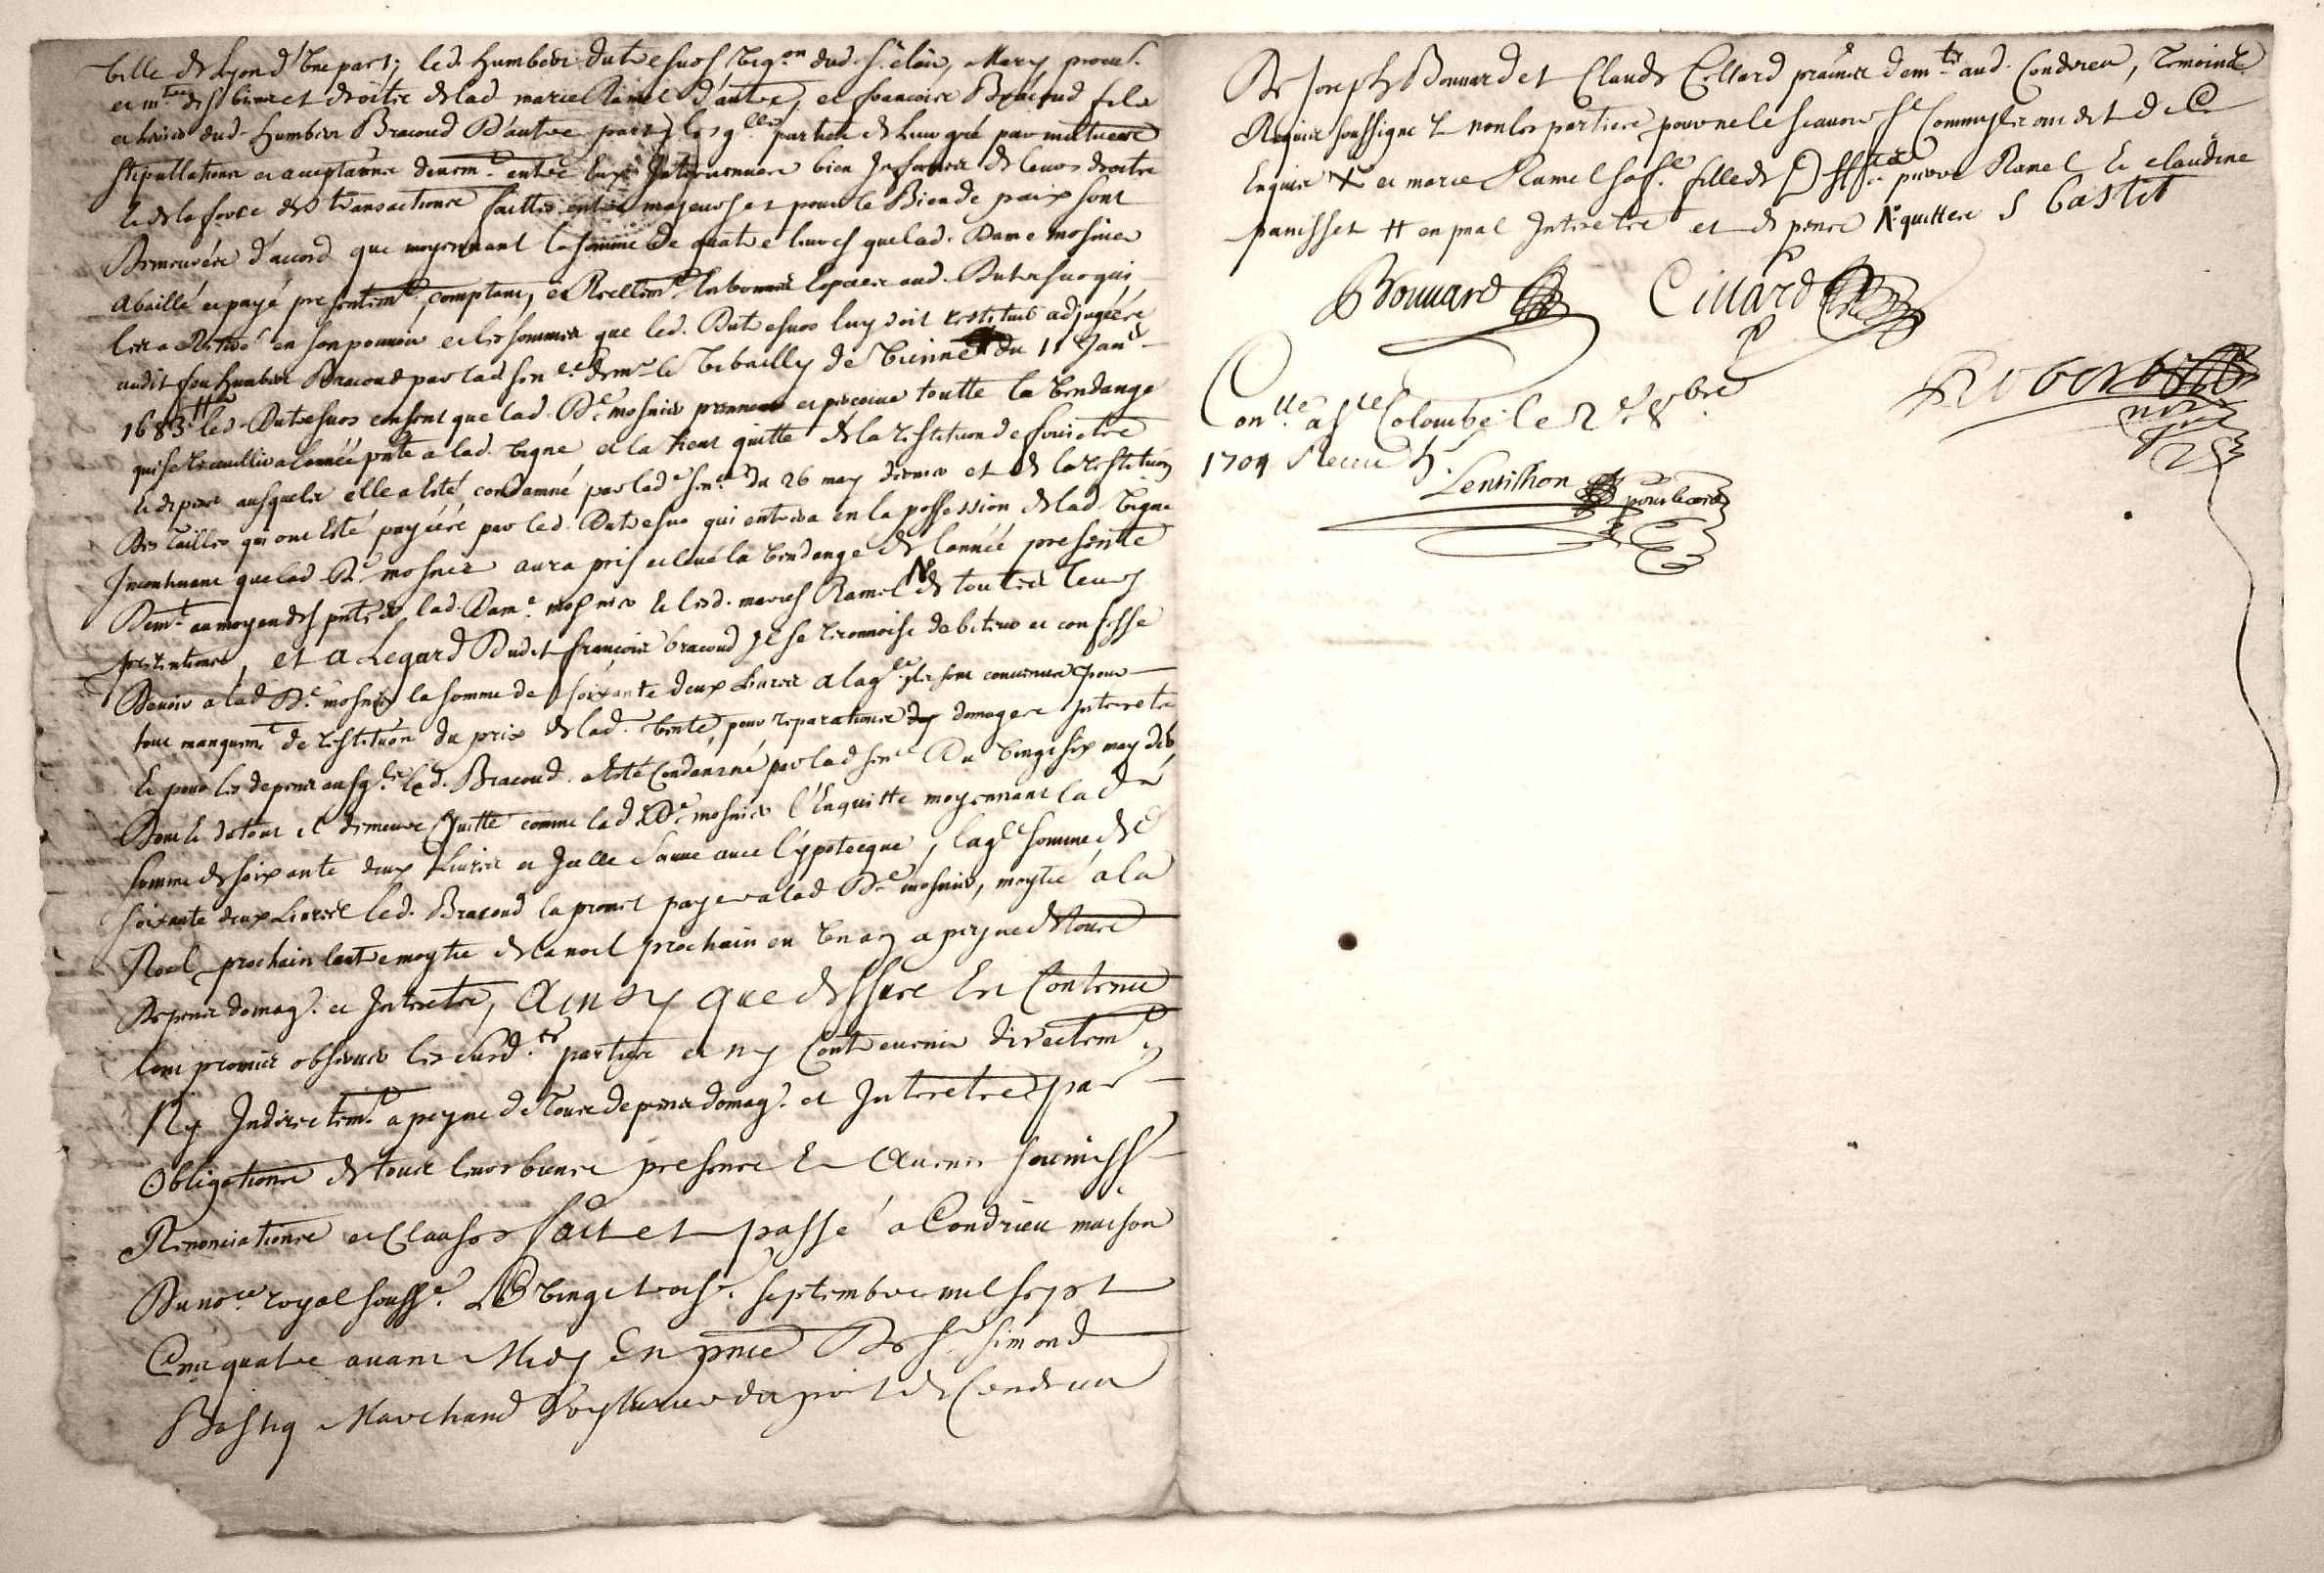 ville de Lyon d'Une part; led. humbert dutresnos vig.on dud. st clair, Mary procur.
et m.tre des biens et droitz de lad. marie Ramel d'autre, et francois Bracoud fils
et heritier dud. humbert Bracoud D'autre part, lesq.lles parties de leur gré par mutuere
stipullations et acceptations deuem.t entre Eux Intervenues bien Informés de leurs droitz
et de la force des transactions faittes entre majeurs et pour le Bien de paix sont
Demeurés d'accord que moyennant la somme de quatre livres que lad. Dame mosnier
a baillé et payé presentem.t, comptant, et Reellem.t En bonnes Especes aud. Dutresnos qui
les a Retiré en son pouvoir et les sommes que led. Dutresnos luy doit restituer adjugées
audit feu humbert Bracoud par lad. sen.ce de mr le Vibailly de Vienne du 11 Jan.r
1683 # led. Dutresnos consent que lad. D.e mosnier prenne et percoive toutte la Vendange
qui se recueillira l'année p.nte a lad. vigne et la tient quitte de la restitution de fruictz
et depens ausquels elle a Esté condamné par lad. sen.ce du 26 may dernier et de la restitution
Des tailles qui ont Esté payées par led. Dutresnos qui entrera en la possession de lad. Vigne
Incontinent que lad. D.e mosnier aura pris et levé la Vendange de l'année presente
Dem.t au moyen des p.ntes lad. Dam.e mosnier et lesd. maries Ramel N de touttes leurs
pretentions, et a Legard Dudit francois bracoud Il se reconnoist debiteur et confesse
Devoir a lad. D.e mosnier la somme de soixante deux Livres a laq.le Ils sont convenus pour
tout manquem.t de restitution du prix de lad. Vente, pour reparations domages Interetz
Et pour les depens ausq.ls led. Bracoud a Esté Condamné par lad. sen.ce Du Vingt six may der,
Dont Et du tout il demeure Quitte comme lad. D.e mosnier l'Enquitte moyennant lad.
somme de soixante deux Livres et Icelle sauve avec l'ypoteque, laq.le somme de
soixante deux Livres led. Bracoud la promet payer a lad. D.e mosnier, moytié a la
Noel prochain lautre moytié de la noel prochain en Un an a peyne de tous
Depens domag. et Interetz, Ainsy que dessus Est Contenu
l'ont promis observer les susd.tes parties et ny Contrevenir directem.t
Ny Indirectem.t a peyne de Tous depens domag. et Interetz par
Obligations de tous leurs biens presens Et Avenir soumiss.
Renonciations et Clauses fait et passé a Condrieu maison
Du no.re royal souss.e Le Vingt trois.e septembre mil sept
Cent quatre avant Midy En p.nce De s.r simond
Bastiq Marchand Voyturier du port de Condrieu
De Joseph Bonnard et Claude Cillard praticiens dem.ts aud. Condrieu, Temoins
Requis soussignés & non les parties pour ne le scavoir de Ce
Enquis X et marie Ramel sa f.e fille de pierre Ramel Et claudine
panisset # en p.nal Interetz et depens N quittes S bastit
Bonnard Cillard
Con.lle a Ste Colombe le 2.e 8bre
1704 Receu
Lentillon
Robert